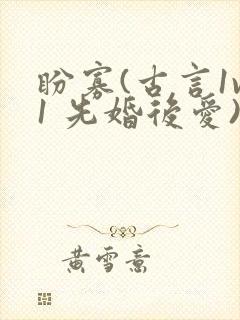 盼寡(古言1v
1 先婚後愛)
黄雪意